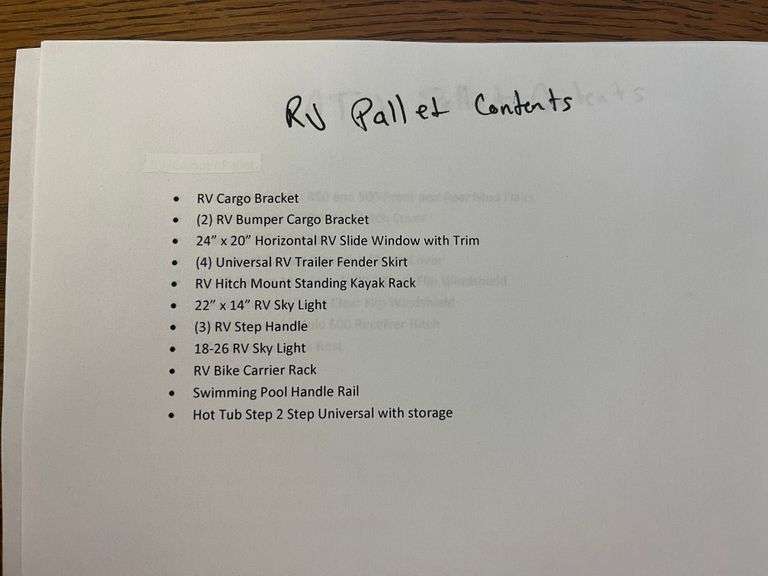 RV Pallet Contents
• RV Cargo Bracket
• (2) RV Bumper Cargo Bracket
• 24” x 20” Horizontal RV Slide Window with Trim
• (4) Universal RV Trailer Fender Skirt
• RV Hitch Mount Standing Kayak Rack
• 22” x 14” RV Sky Light
• (3) RV Step Handle
• 18-26 RV Sky Light
• RV Bike Carrier Rack
• Swimming Pool Handle Rail
• Hot Tub Step 2 Step Universal with storage